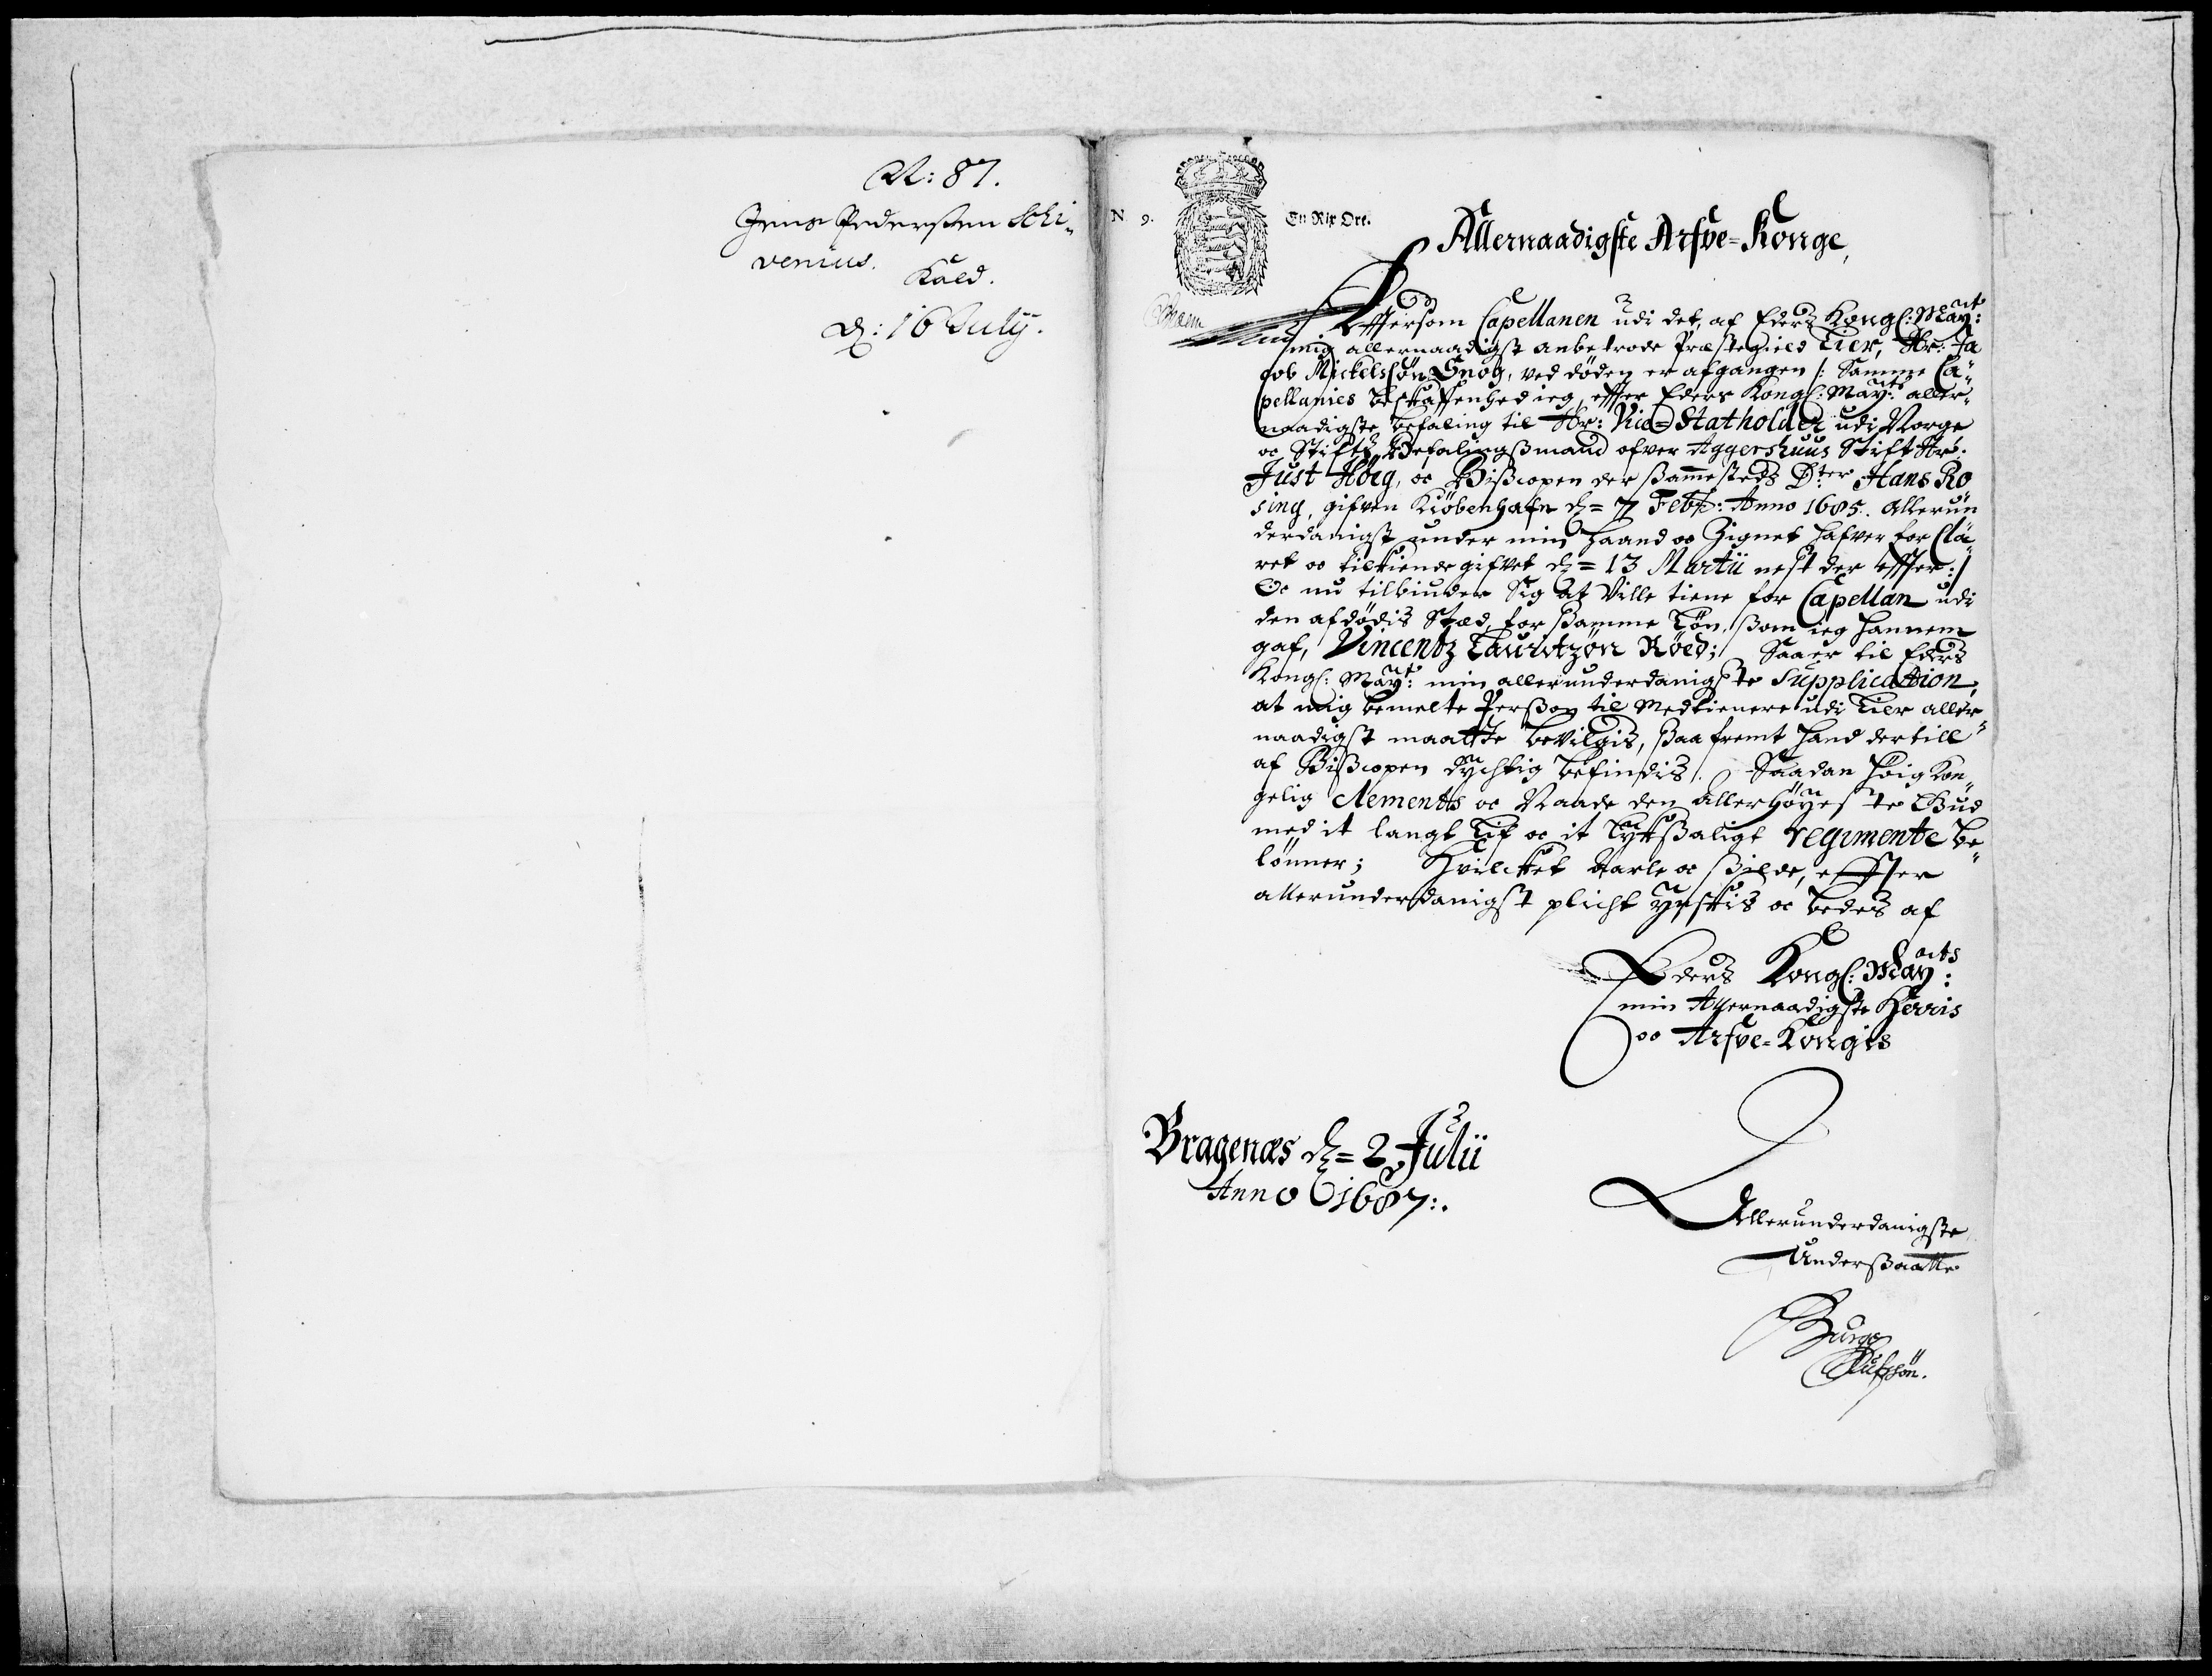 N: 87.
Jens Pedersen Schi-
venius.
Kald.
d: 16 July.
N 9.
En Rix Ort.
Allernaadigste Arfve-Konge,
Effersom Capellanen udi det, af Eders Kongl: May:t
mig allernaadigst anbetrode Præstegield Lier, Hr: Ja
cob Mickelssøn Snog, ved døden er afgangen /: Samme Ca-
pellanies beskaffenhed ieg, effter Eders Kongl: May:ts aller-
naadigste befaling til Hr: Vice-Statholder udi Norge
oc Stifts Befalingsmand ofver Aggershuus Stift Hr:
Just Høeg, oc Biscopen der sammesteds D:ter Hans Ro
sing, gifven Kiøbenhafn d = 7 Febr: Anno 1685. allerun
derdanigst under min haand oc Zignet hafver for Cla-
ret oc tilkiende gifvet d = 13 Martii nest der effter :/
Oc nu tilbiuder Sig at Ville tiene for Capellan udi
den afdødis Stæd, for samme Løn, som ieg hannem
gaf, Vincentz Lauritzøn Røed; Saa er til Eders
Kongl: May:t min allerunderdanigste Supplication,
at mig bemelte Person til Medtienere udi Lier aller-
naadigst maatte bevilgis, saa fremt hand der till
af Biscopen dychtig befindis. Saadan høig Kon-
gelig Clements oc Naade den allerhøyeste Gud
med it langt Lif oc it lycksaligt regimente be-
lønner; Hvilcket aarle oc silde, effter
allerunderdanigst plicht ynskis oc bedes af
Eders Kongl: May:ts
min Allernaadigste Herris
oc Arfve-Kongis
Bragenæs d = 2 Julii
Anno 1687:.
Allerunderdanigste
Undersaatte